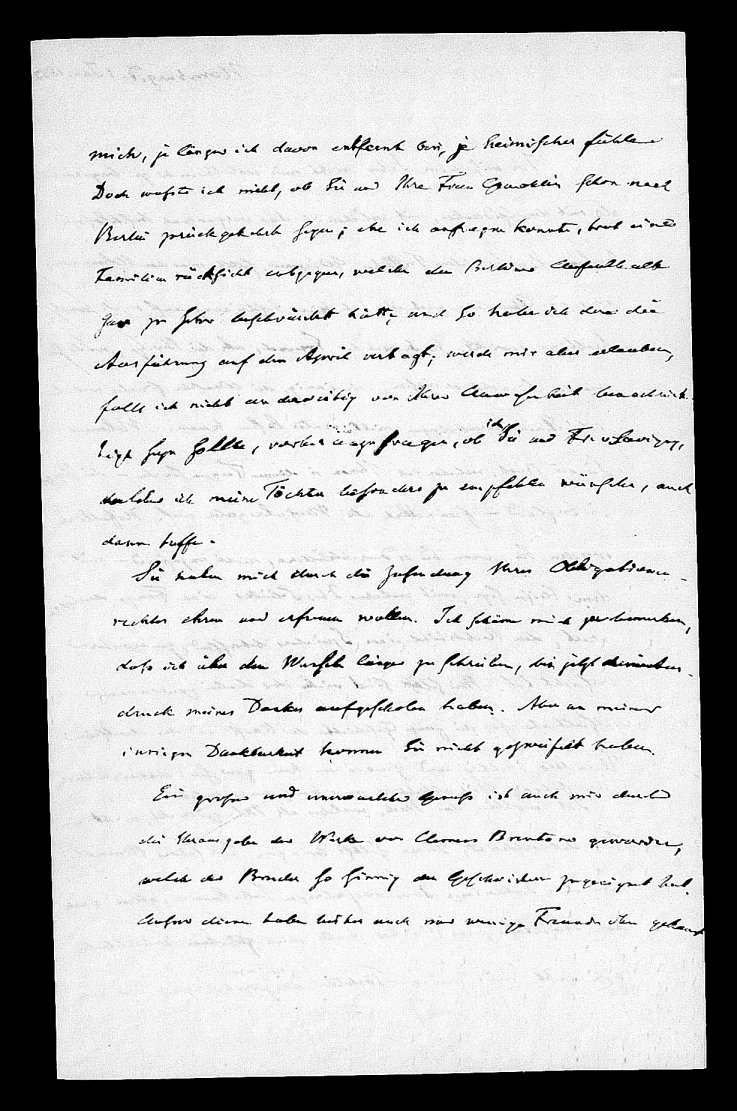 mich, je länger ich davon entfernt bin, je heimischer fühle
Doch wußte ich nicht, ob Sie und Ihre Frau Gemahlin schon nach
Berlin zurückgekehrt seyen; ehe ich anfragen konnte, trat eine
Familienrücksicht entgegen, welche den Berliner Aufenthalt
gar zu sehr beschränkt hätte, und so habe ich denn die
Ausführung auf den April vertagt; werde mir aber erlauben,
falls ich nicht anderweitig von Ihrer Anwesenheit benachrich-
tigt seyn sollte, vorher anzufragen, ob ich Sie und Fr. v. Savigny,
welcher ich meine Töchter besonders zu empfehlen wünsche, auch
dann treffe.
Sie haben mich durch die Zusendung Ihres Obligationen-
rechtes ehren und erfreuen wollen. Ich schäme mich zu bemerken,
daß ich über den Wunsch länger zu schreiben, bis jetzt den
druck meines Dankes aufgeschoben habe. Aber an meiner
innigen Dankbarkeit können Sie nicht gezweifelt haben.
Ein großer und unerwarteter Genuß ist auch mir durch
die Herausgabe der Werke von Clemens Brentano geworden,
welche der Bruder so sinnig den Geschwistern zugeeignet hat.
Außer diesen haben bisher auch nur wenige Freunde ihn gekannt